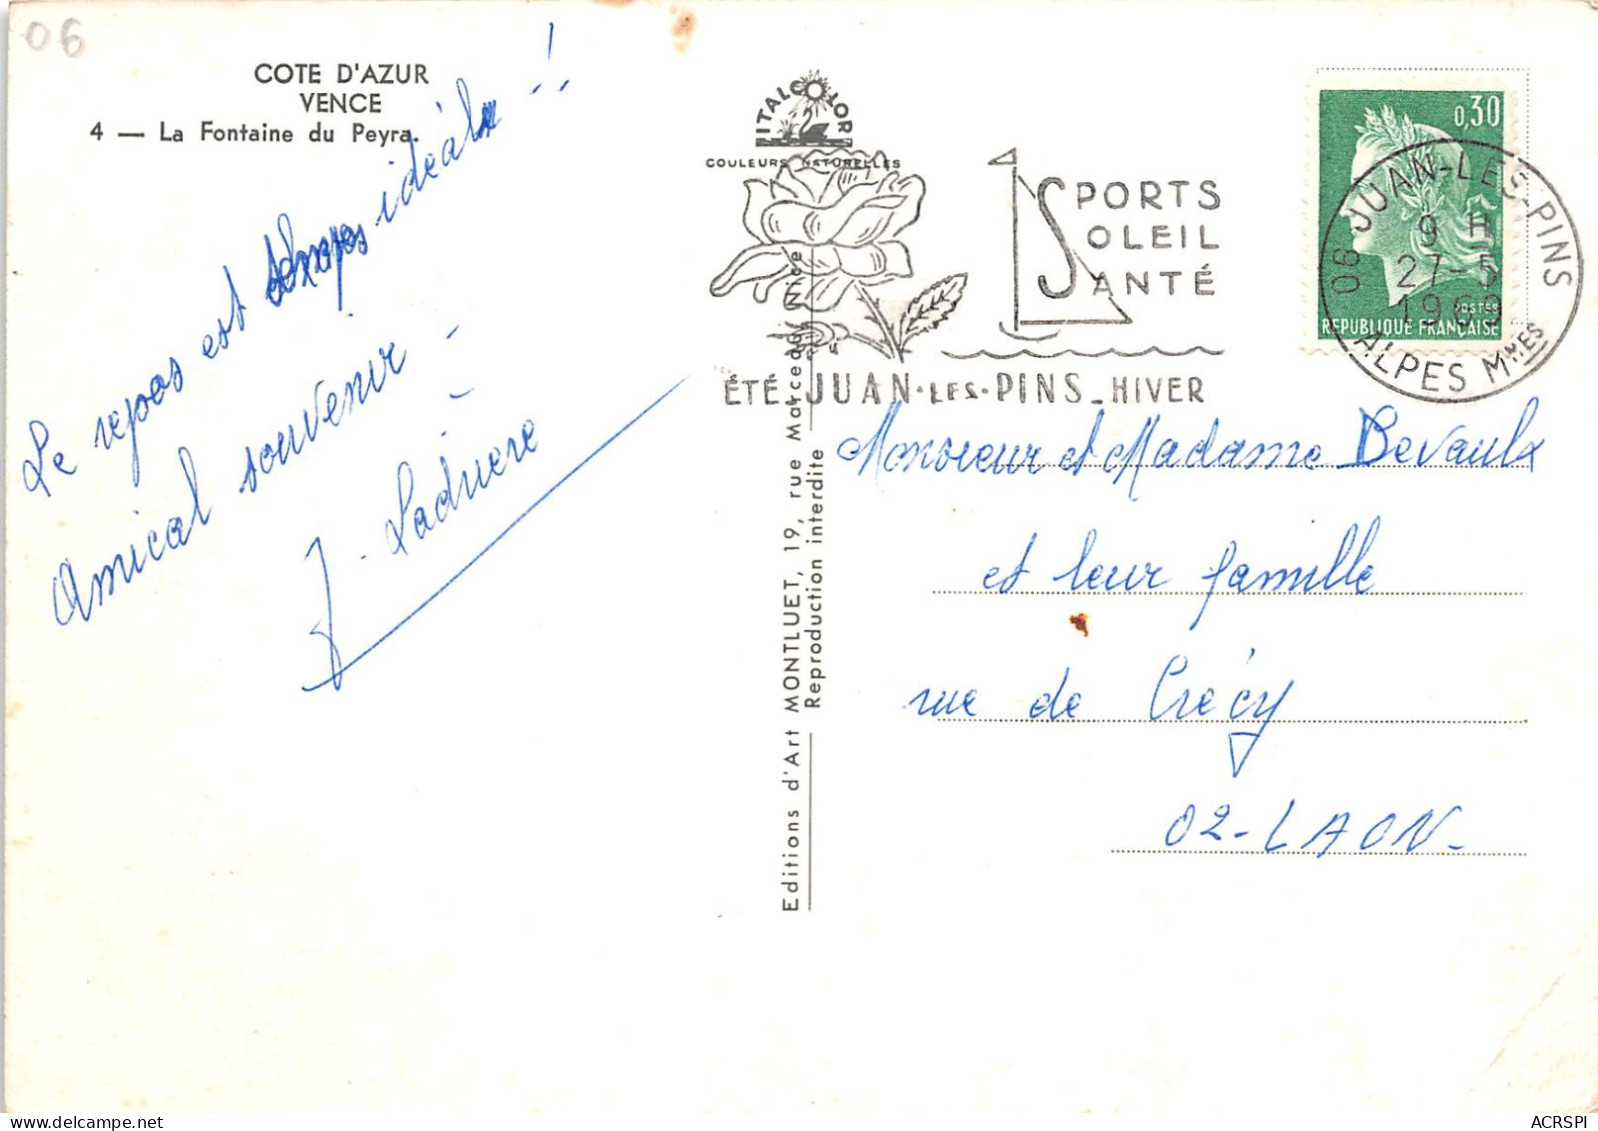 06
COTE D'AZUR
VENCE
4 — La Fontaine du Peyra.
Le repos est temps idéal !!
Amical souvenir -
J - Laduere
ITALCOLOR
COULEURS NATURELLES
SPORTS
SOLEIL
SANTÉ
ÉTÉ JUAN-LES-PINS - HIVER
0,30
POSTES
REPUBLIQUE FRANÇAISE
06 JUAN-LES-PINS
9 H
27-5
1969
ALPES MMES
Editions d'Art MONTLUET, 19, rue Marceau, Nice
Reproduction interdite
Monsieur et Madame Devaulx
et leur famille
rue de Crécy
02-LAON-
ACRSPI